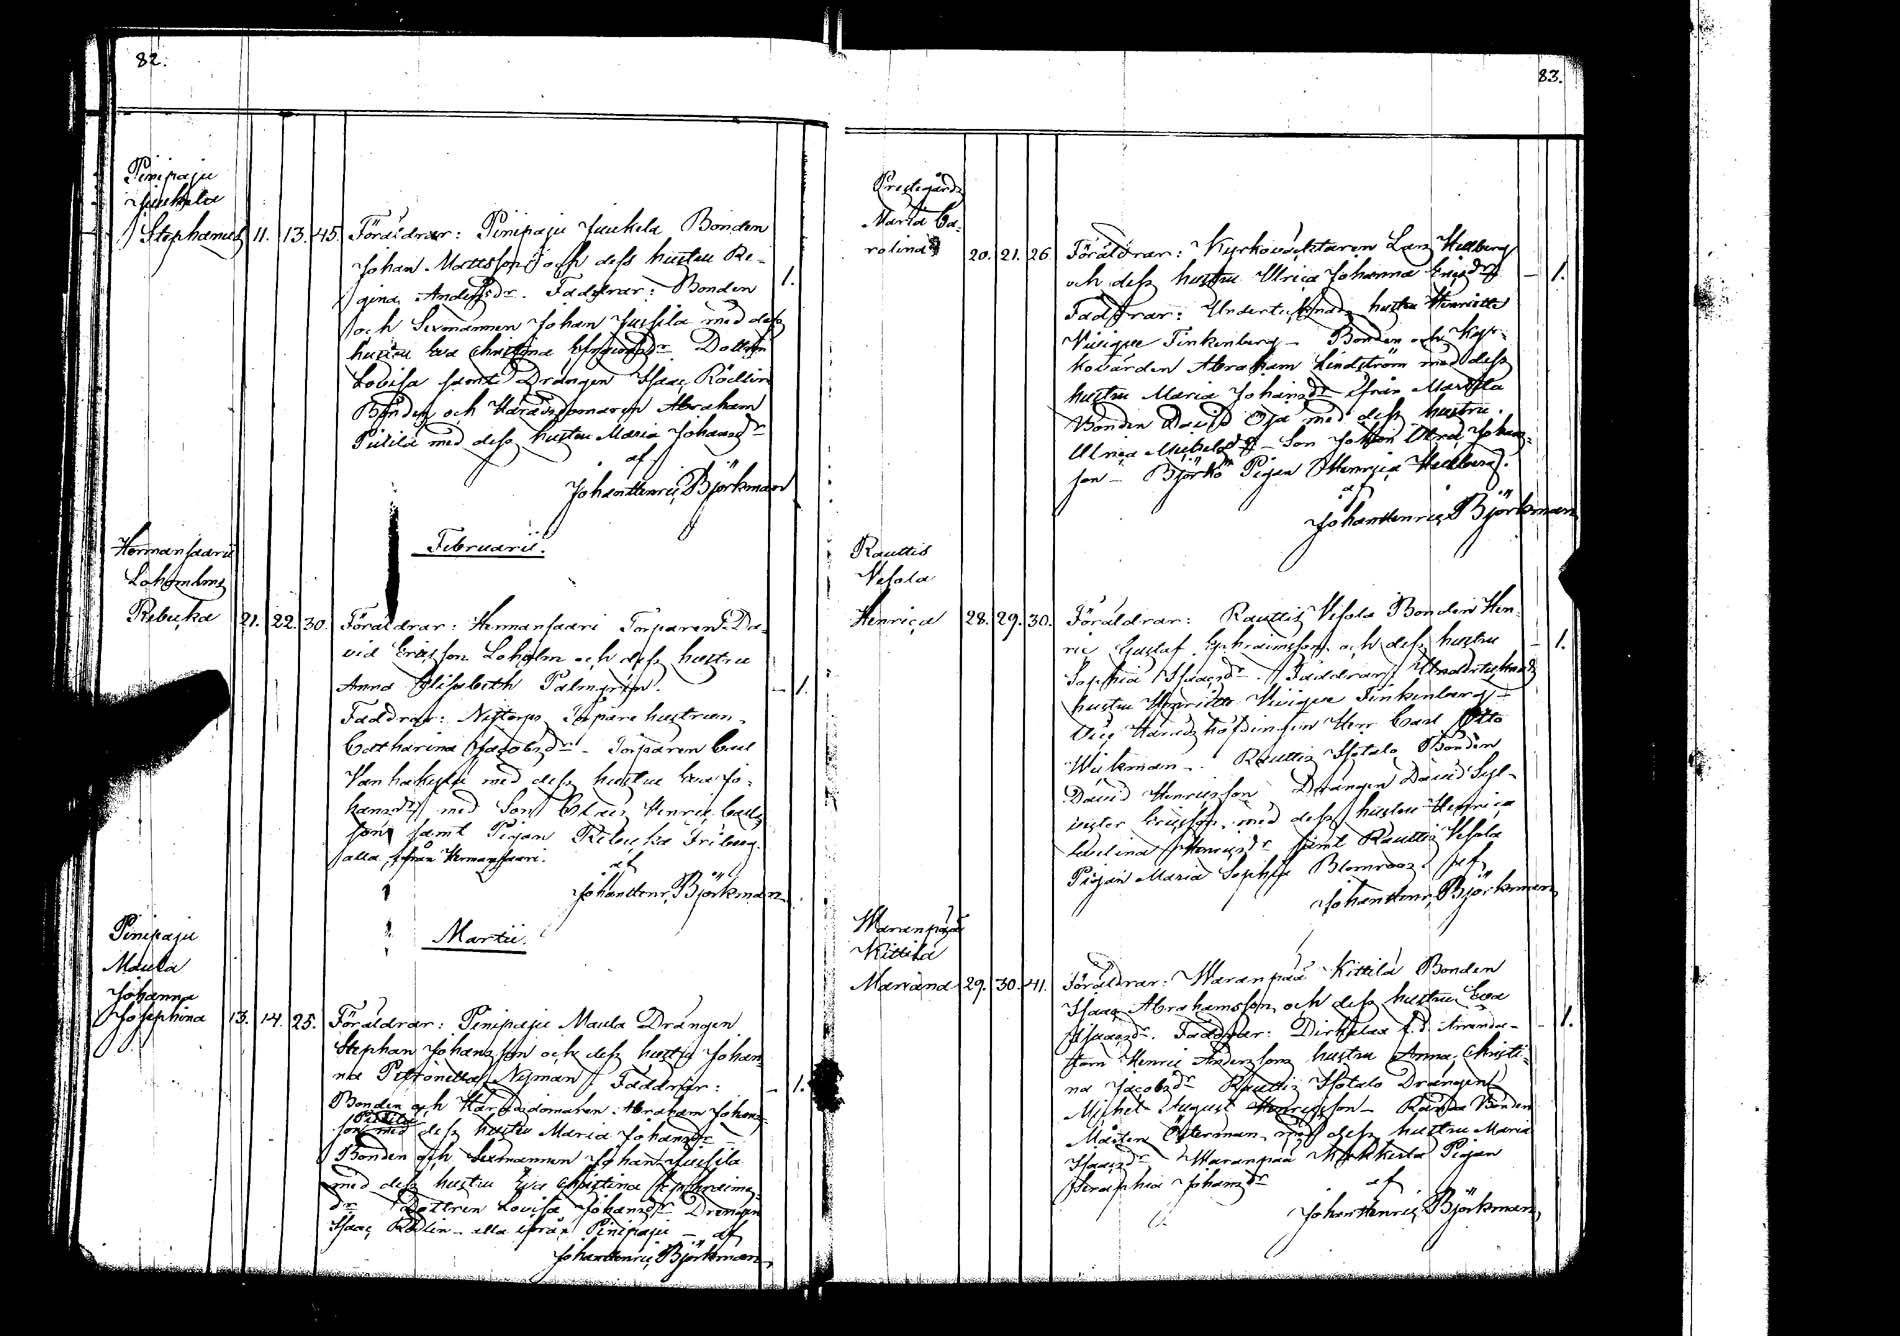 82.
Pinipaju
Juukela
Stephanus 11. 13. 45. Föräldrar: Pinipaju Juukela Bonden
Johan Mattsson och dess hustru Re-
gina Andersdr. Faddrar: Bonden 1.
och Sexmannen Johan Jussila med dess
hustru Eva Christina Dottren
Lovisa samt Drängen Isaac Rödlin
Bonden och Häradsdomaren Abraham
Pietilä med dess hustru Maria Johansdr
af
Johan Henric Björkman
Februarii.
Hermansaari
Loholms
Rebecka 21. 22. 30. Föräldrar: Hermansaari Torparen Da-
vid Ericsson Loholm och dess hustru
Anna Elisabeth Palmgren. – 1.
Faddrar: Torpare hustrun
Catharina Jacobsdr – Torparen Carl
Vanhakylä med dess hustru Eva Jo-
hansdr med Son Claes Henric Carls-
son samt Pigan Rebecka Friberg.
alla ifrån Hermansaari.
af
Johan Henr. Björkman
Martii.
Pinipaju
Maula
Johanna
Josephina 13. 14. 25. Föräldrar: Pinipaju Maula Drängen
Stephan Johansson och dess hustru Johan-
na Petronella Nyman. Faddrar: – 1.
Bonden och Häradsdomaren Abraham Johans-
Pietilä
son med dess hustru Maria Johansdr –
Bonden och Sexmannen Johan Jussila
med dess hustru Eva Christina Ephraims-
dr Dottren Lovisa Johansdr Drängen
Isaac Rödlin – alla ifrån Pinipaju – af
Johan Henric Björkman
83.
Prestegårds
Maria Ca-
rolina 20. 21. 26. Föräldrar: Kyrkoväktaren Lars Hedberg
och dess hustru Ulrica Johanna Ericsdr – 1.
Faddrar: Undertecknads hustru Henriette
Vivique Finkenberg – Bonden och Kyr-
kovärden Abraham Lindström med dess
hustru Maria Johansdr ifrån Marttila
Bonden David Öja med dess hustru
Ulrica Michelsdr – Son Johan Johans-
son – Björkö Pigan Henrica Hedberg.
af
Johan Henric Björkman
Rauttis
Vesola
Henrica 28. 29. 30. Föräldrar: Rauttis Vesola Bonden Hen-
ric Gustaf Ephraimsson och dess hustru – 1.
Sophia Isaacsdr. Faddrar: Undertecknads
hustru Henriette Vivique Finkenberg –
Vice Häradshöfdingen Herr Carl Otto
Wikman – Rauttis Isotalo Bonden
David Henricsson Drängen David Syl-
vester Ericsson med dess hustru Henrica
Henricsdr samt Rauttis Vesola
Pigan Maria Sophia Blomroos. af
Johan Henr. Björkman
Waranpää
Kittilä
Mariana 29. 30. 41. Föräldrar: Waranpää Kittilä Bonden
Isaac Abrahamsson och dess hustru Eva
Isaacsdr. Faddrar: f.d. Arrenda- – 1.
torn Henric Anderssons hustru Anna Christi-
na Jacobsdr Rauttis Isotalo Drängen
Michel August Henricsson – Bonden
Mårten Österman med dess hustru Maria
Isaacsdr Waranpää Pigan
Seraphia Johansdr
af
Johan Henric Björkman